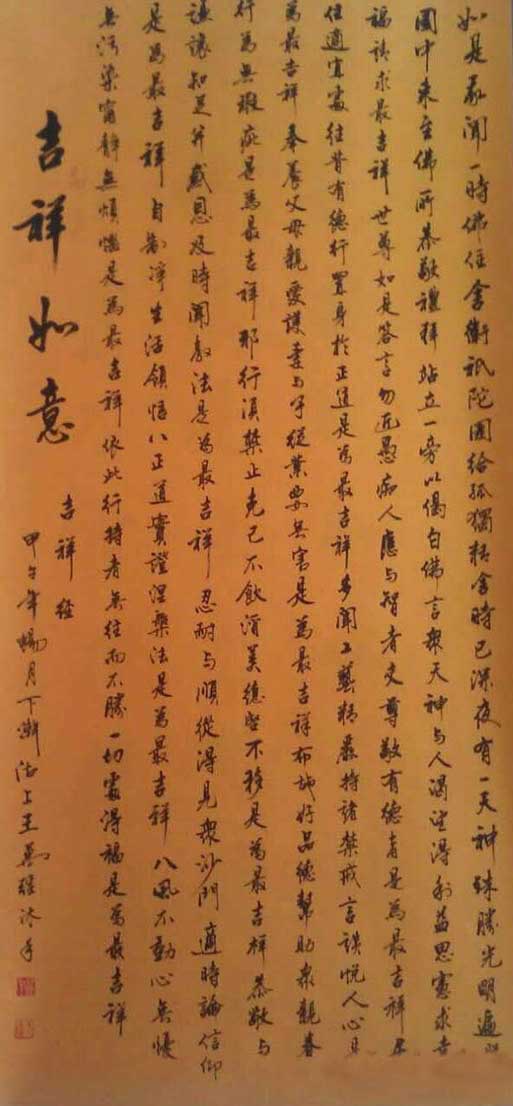 如是我聞一時佛住舍衛祇陀園給孤獨精舍時已深夜有一天神殊勝光明遍照
園中來至佛所恭敬禮拜站立一旁以偈白佛言眾天神與人渴望得利益思慮求吉
福請求最吉祥世尊如是答言勿近愚痴人應与智者交尊敬有德者是為最吉祥居
住適宜處往昔有德行置身於正道是為最吉祥多聞工藝精嚴持諸禁戒言談悅人心是
為最吉祥奉養父母親愛護妻与子從業要無害是為最吉祥布施好品德幫助眾親眷
行為無瑕疵是為最吉祥邪行須禁止克己不飲酒美德堅不移是為最吉祥恭敬与
謙讓知足并感恩及時聞教法是為最吉祥忍耐与順從得見眾沙門適時論信仰
是為最吉祥自制淨生活領悟八正道實證涅槃法是為最吉祥八風不動心無憂
無污染甯靜無煩惱是為最吉祥依此行持者無往而不勝一切處得福是為最吉祥
吉祥如意
吉祥經
甲午年暢月下澣 上王 沐手